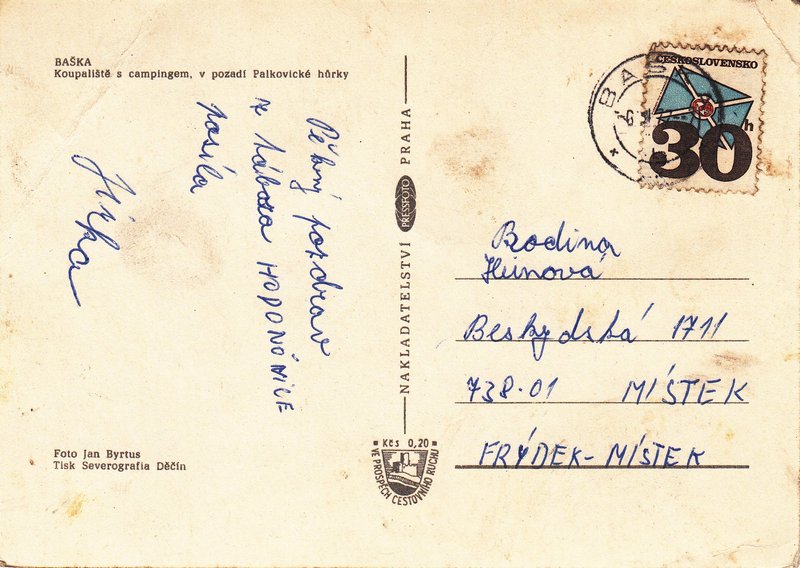 BAŠKA
Koupaliště s campingem, v pozadí Palkovické hůrky
Pěkný pozdrav
z tábora HODOŇOVICE
posílá
Jirka
Foto Jan Byrtus
Tisk Severografia Děčín
NAKLADATELSTVÍ PRESSFOTO PRAHA
Kčs 0,20
VE PROSPĚCH CESTOVNÍHO RUCHU
ČESKOSLOVENSKO
30h
BAŠ
Rodina
Hůnová
Beskydská 1711
738-01 MÍSTEK
FRÝDEK-MÍSTEK